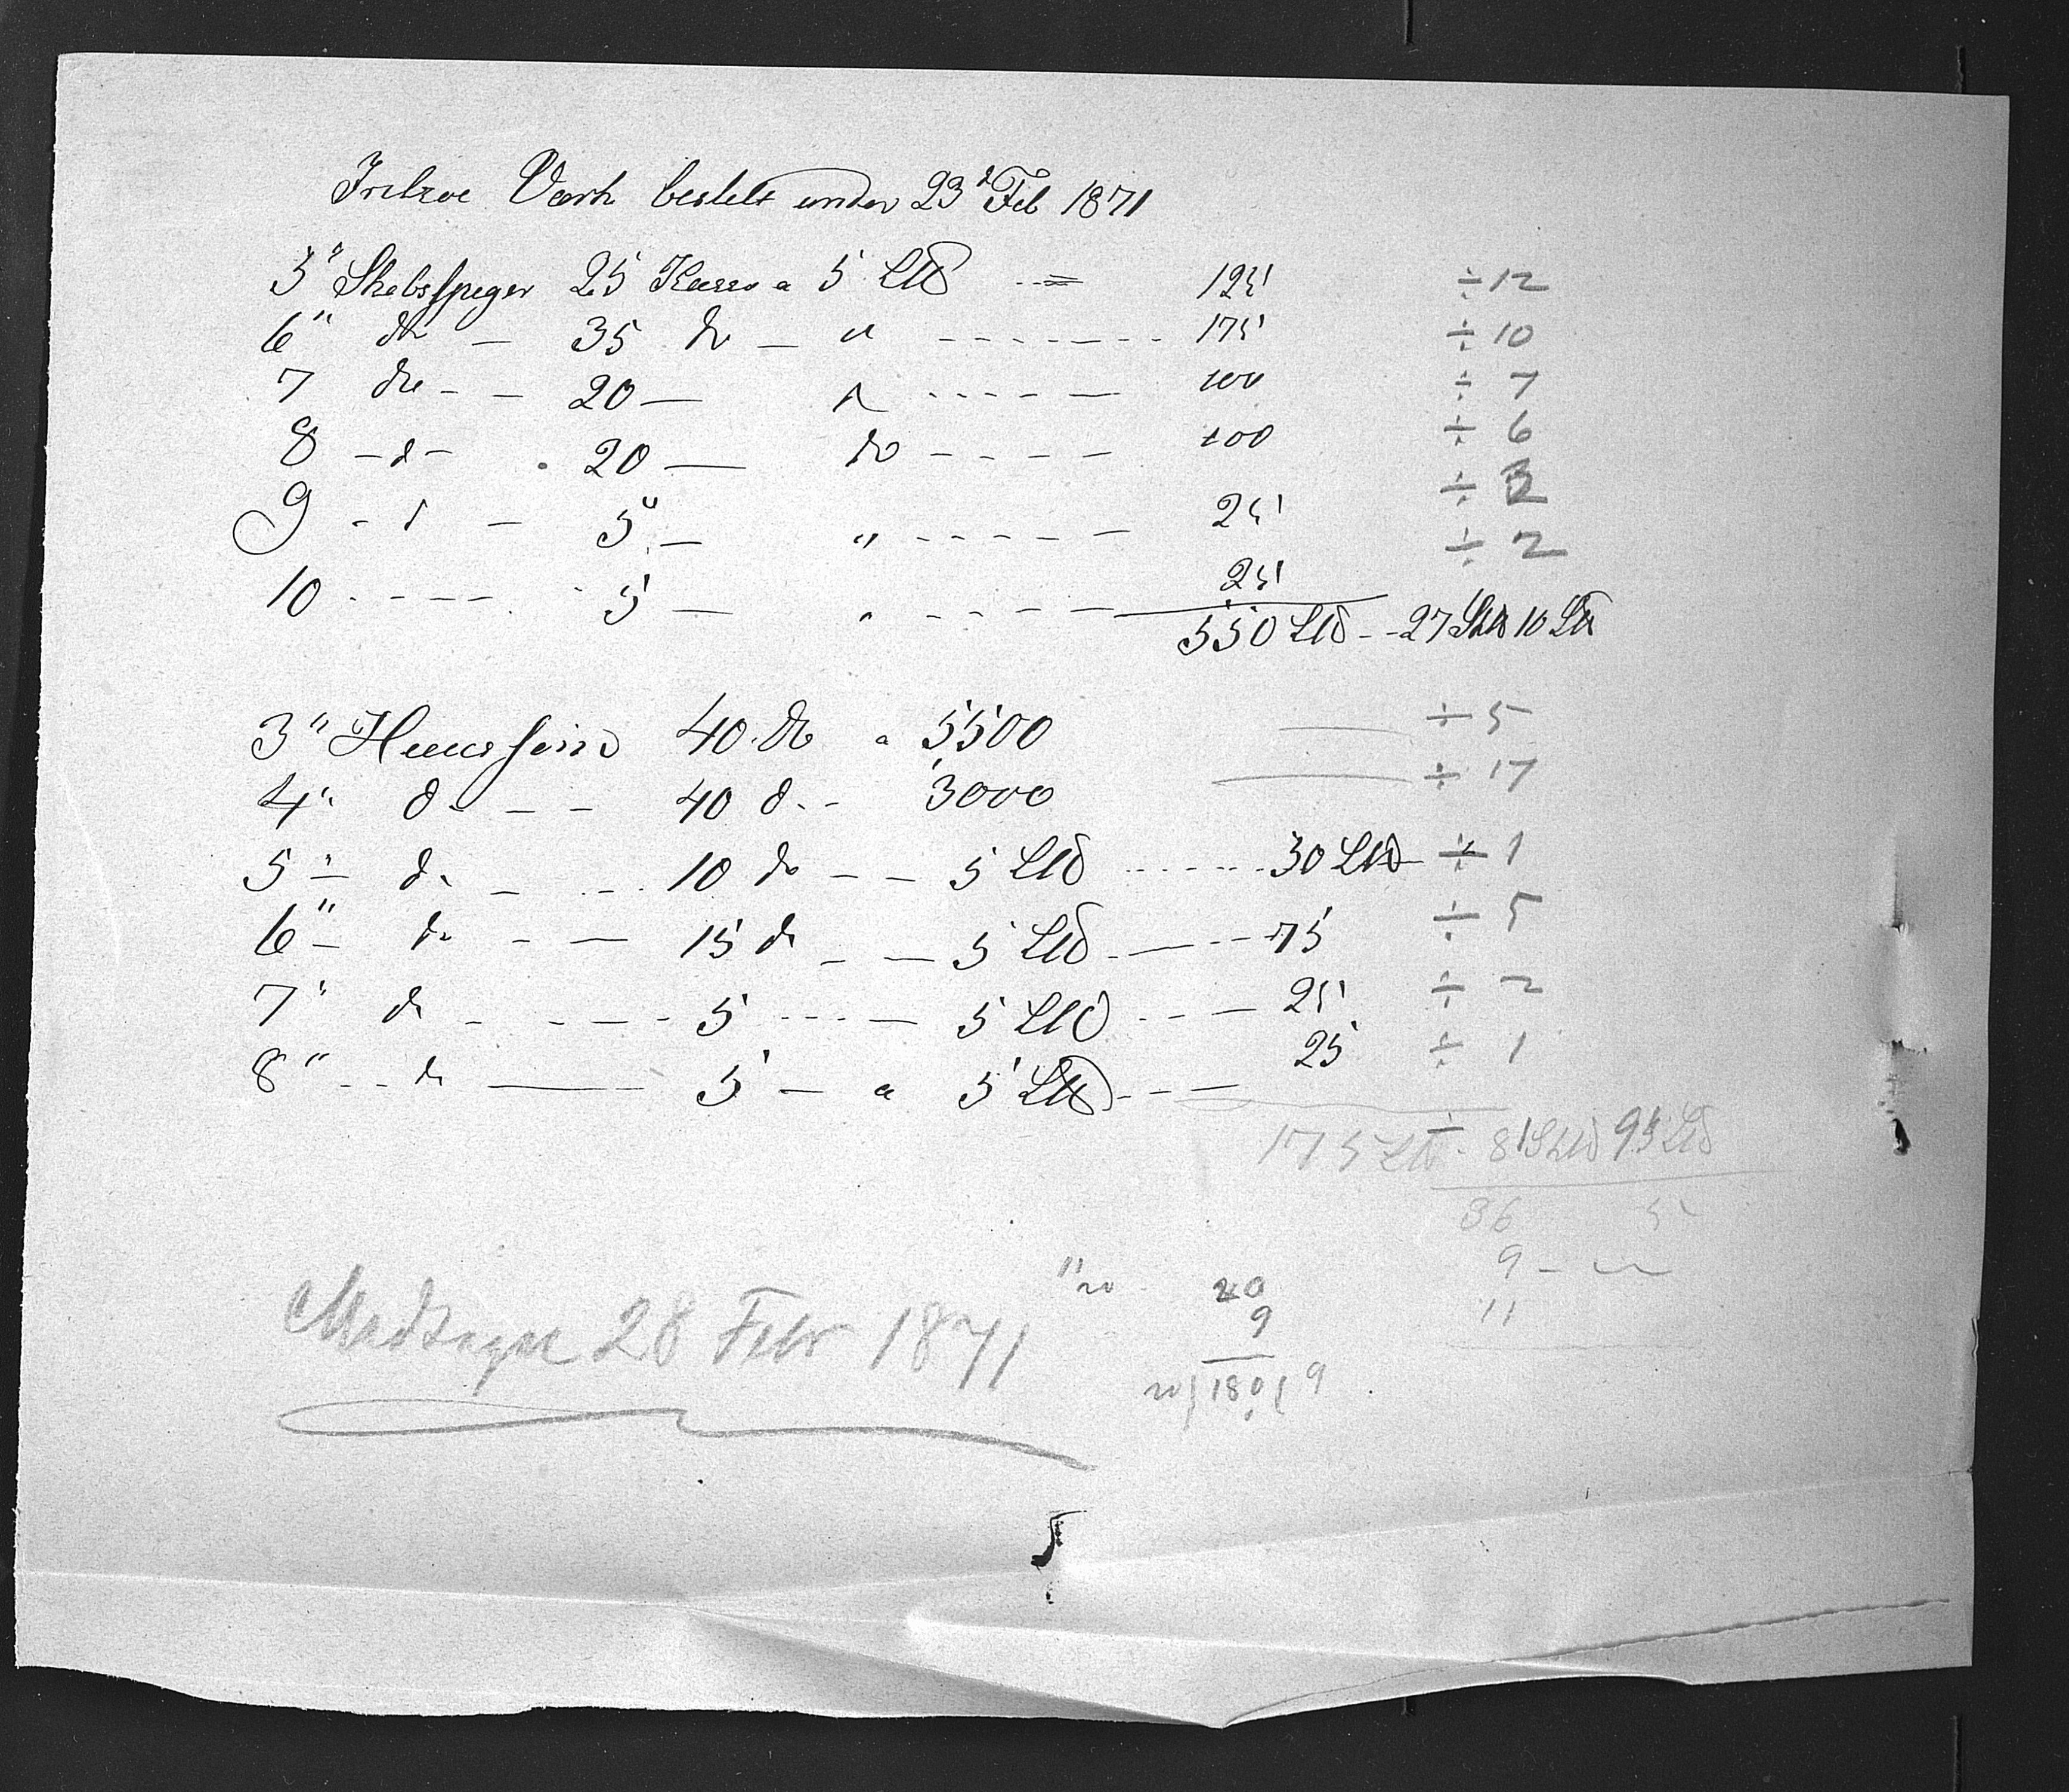 Fritzoe Værk bestelt under 23d Feb 1871
3" Skibsspiger 25 Kasser a 5 L℔ = 125 ÷ 12
6" do — 35 do — " 175 ÷ 10
7 do — 20 — " 100 ÷ 7
8 — d — 20 — do 100 ÷ 6
9 - d — 5 — " 25 ÷ 2
10 5 — " 25 ÷ 2
550 L℔ - - 27 Sk℔ 10 L℔
3" Huussøm 40 do a 5500 ÷ 5
4" do — 40 do - 3000 ÷ 17
5" do — 10 do — 5 L℔ 30 L℔ ÷ 1
6" do — 15 do — 5 L℔ 75 ÷ 5
7" do — 5 — 5 L℔ 25 ÷ 2
8" do — 5 — a 5 L℔ 25 ÷ 1
175 L℔ ÷ 8 Sk℔ 95 L℔
36 5
9 -
11
20
9
180 9
28 Febr 1871